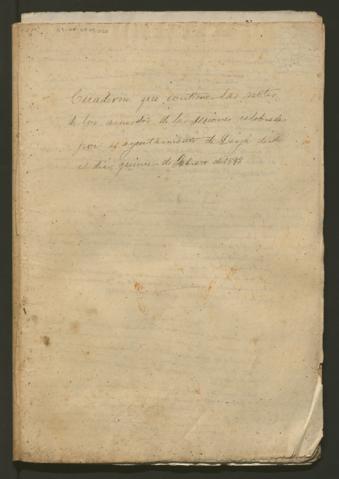 Cuaderno que contiene las actas
de los acuerdos de las sesiones celebradas
por el ayuntamiento de desde
el dia quince de Febrero de